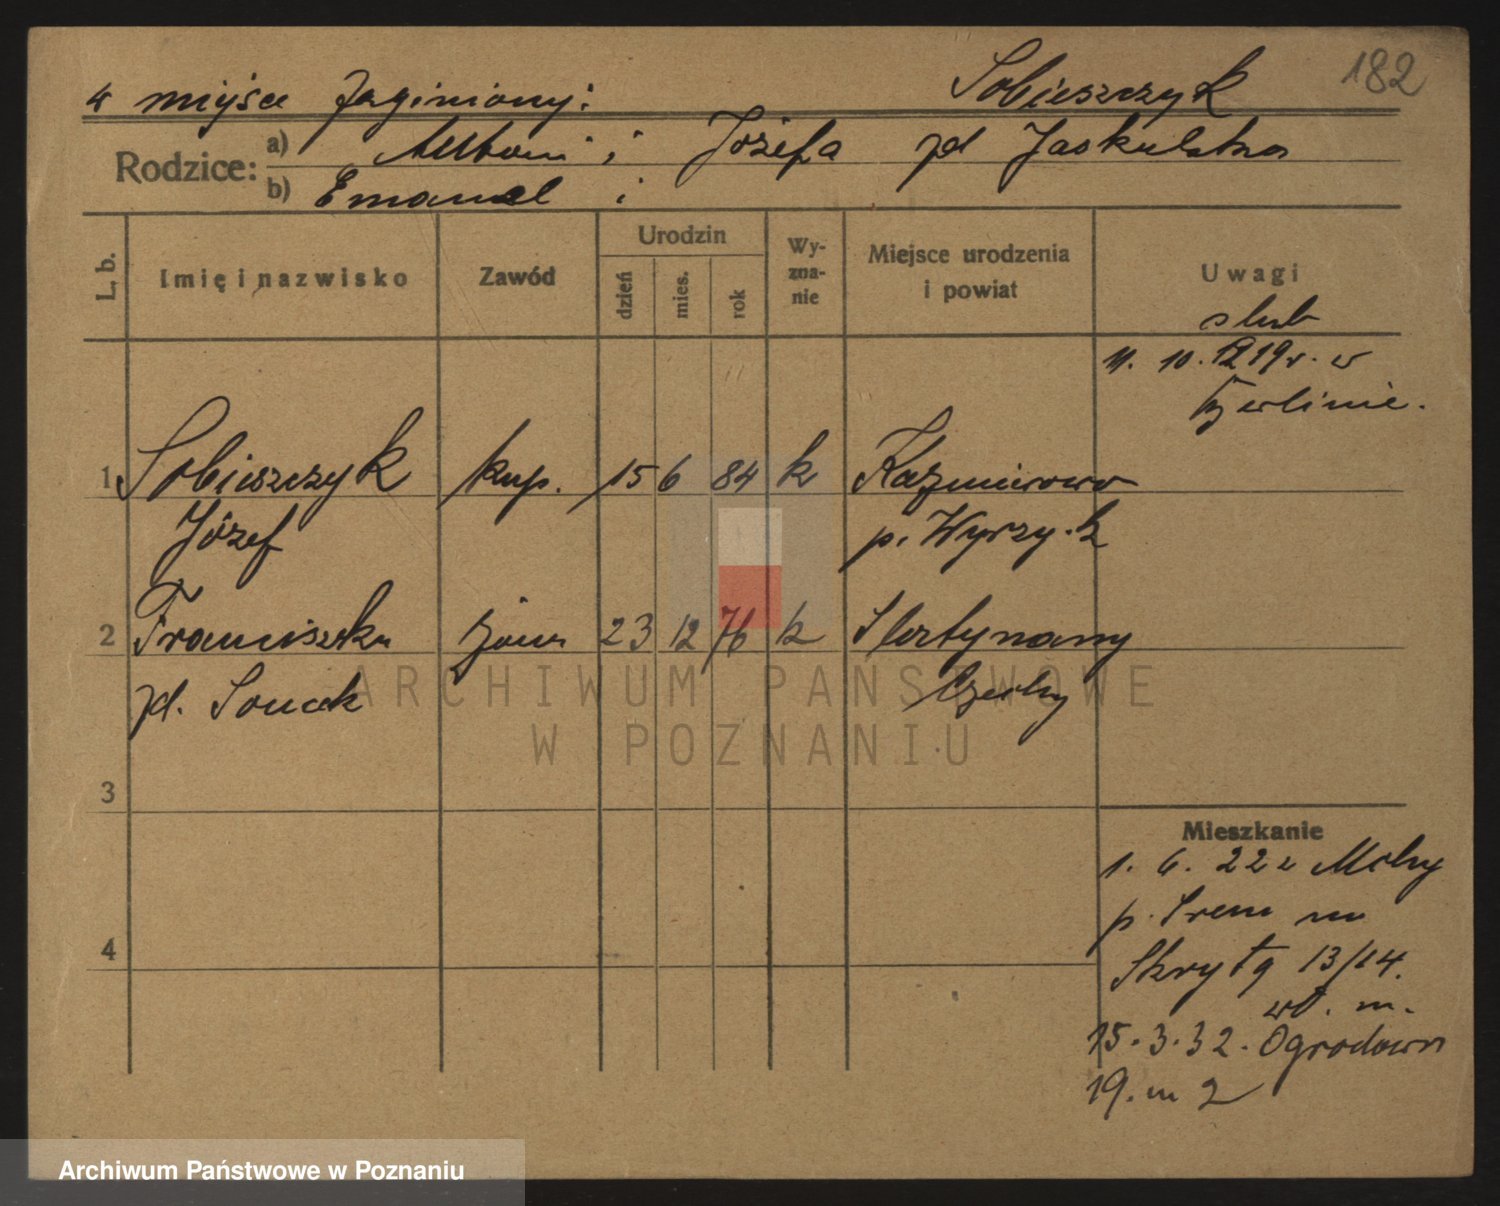 182
w miejsce zaginionej: Sobieszczyk
Rodzice: a) Antoni i Józefa zd Jaskulska
b) Emanuel i
L. b.
Imię i nazwisko
Zawód
Urodzin
dzień
mies.
rok
Wy-
zna-
nie
Miejsce urodzenia
i powiat
Uwagi
slub
11. 10. 1919 r. w
Berlinie.
1 Sobieszczyk kup. 15 6 84 k Kazmierowo
Józef p. Wyrzysk
2 Franciszka żona 23 12 76 k
zd. Czechy
3
4
Mieszkanie
1. 6. 22 z
p. Srem na
Skrytą 13/14.
wł. m.
15. 3. 32. Ogrodowa
19. m 2
ARCHIWUM PAŃSTWOWE
W POZNANIU
Archiwum Państwowe w Poznaniu